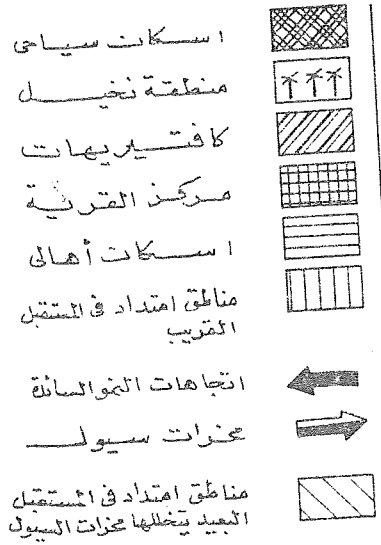 اسكان سياحى
منطقة نخيل
كافتيريهات
مركز القرية
اسكان أهالى
مناطق امتداد فى المستقبل
القريب
اتجاهات النمو السائدة
مخرات سيول
مناطق امتداد فى المستقبل
البعيد يتخللها مخرات السيول